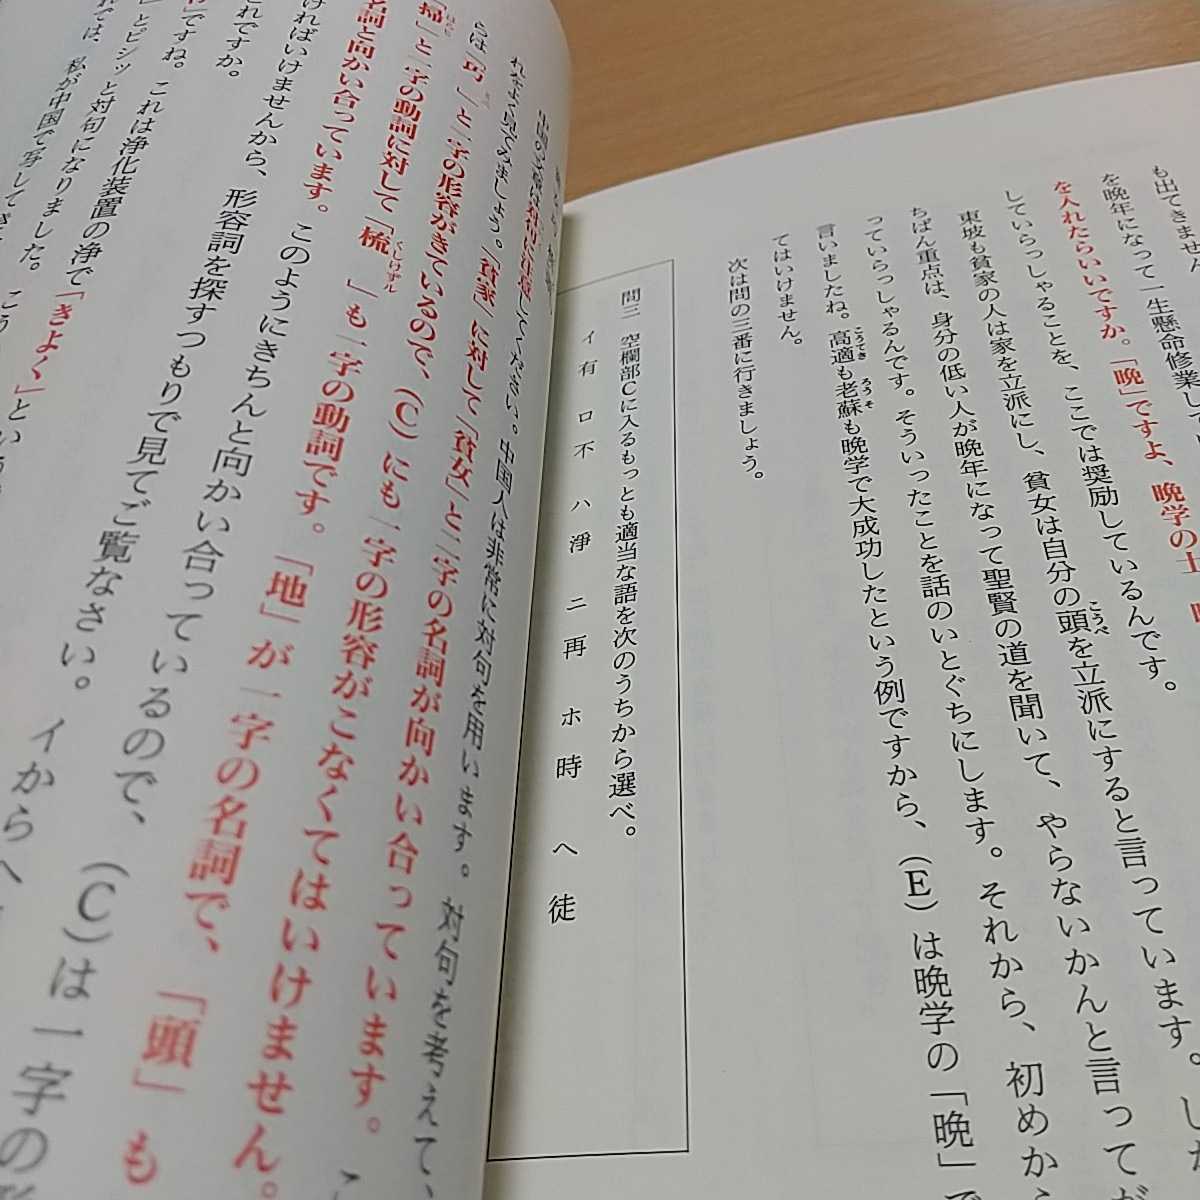 も出てきません
を晩年になって一生懸命修業し
を入れたらいいですか。「晩」ですよ、晩学の士
していらっしゃることを、ここでは奨励しているんです。
東坡も貧家の人は家を立派にし、貧女は自分の頭を立派にすると言っています。した
ちばん重点は、身分の低い人が晩年になって聖賢の道を聞いて、やらないかんと言ってだ
っていらっしゃるんです。そういったことを話のいとぐちにします。それから、初めから
言いましたね。高適も老蘇も晩学で大成功したという例ですから、(E)は晩学の「晩」で
てはいけません。
次は問の三番に行きましょう。
問三 空欄部Cに入るもっとも適当な語を次のうちから選べ。
イ 有 ロ 不 ハ 淨 ニ 再 ホ 時 ヘ 徒
対句に注意してください。中国人は非常に対句を用います。対句を考えて、
れをよく見てみましょう。「貧家」に対して「貧女」と二字の名詞が向かい合っています。こ
らは「巧」と一字の形容がきているので、(C)にも一字の形容がこなくてはいけません。
「掃」と一字の動詞に対して「梳」も一字の動詞です。「地」が一字の名詞で、「頭」も
名詞と向かい合っています。このようにきちんと向かい合っているので、(C)は一字の
ければいけませんから、形容詞を探すつもりで見てご覧なさい。イからヘ
れですか。
ですね。これは浄化装置の浄で「きよく」という
」とピシッと対句になりました。こう
では、私が中国で写してき